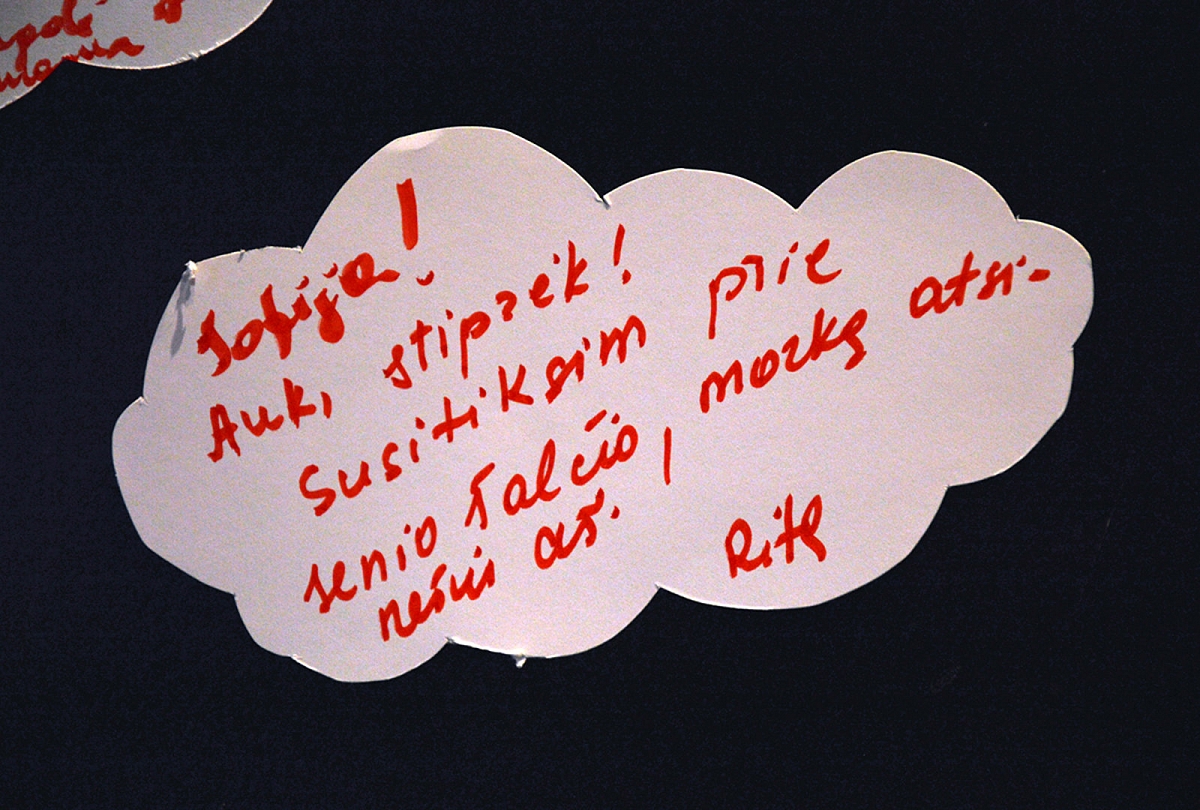 Sofija!
Auk, stiprėk!
Susitiksim prie
senio šalčio, morką atsi-
nešiu aš.
Rita